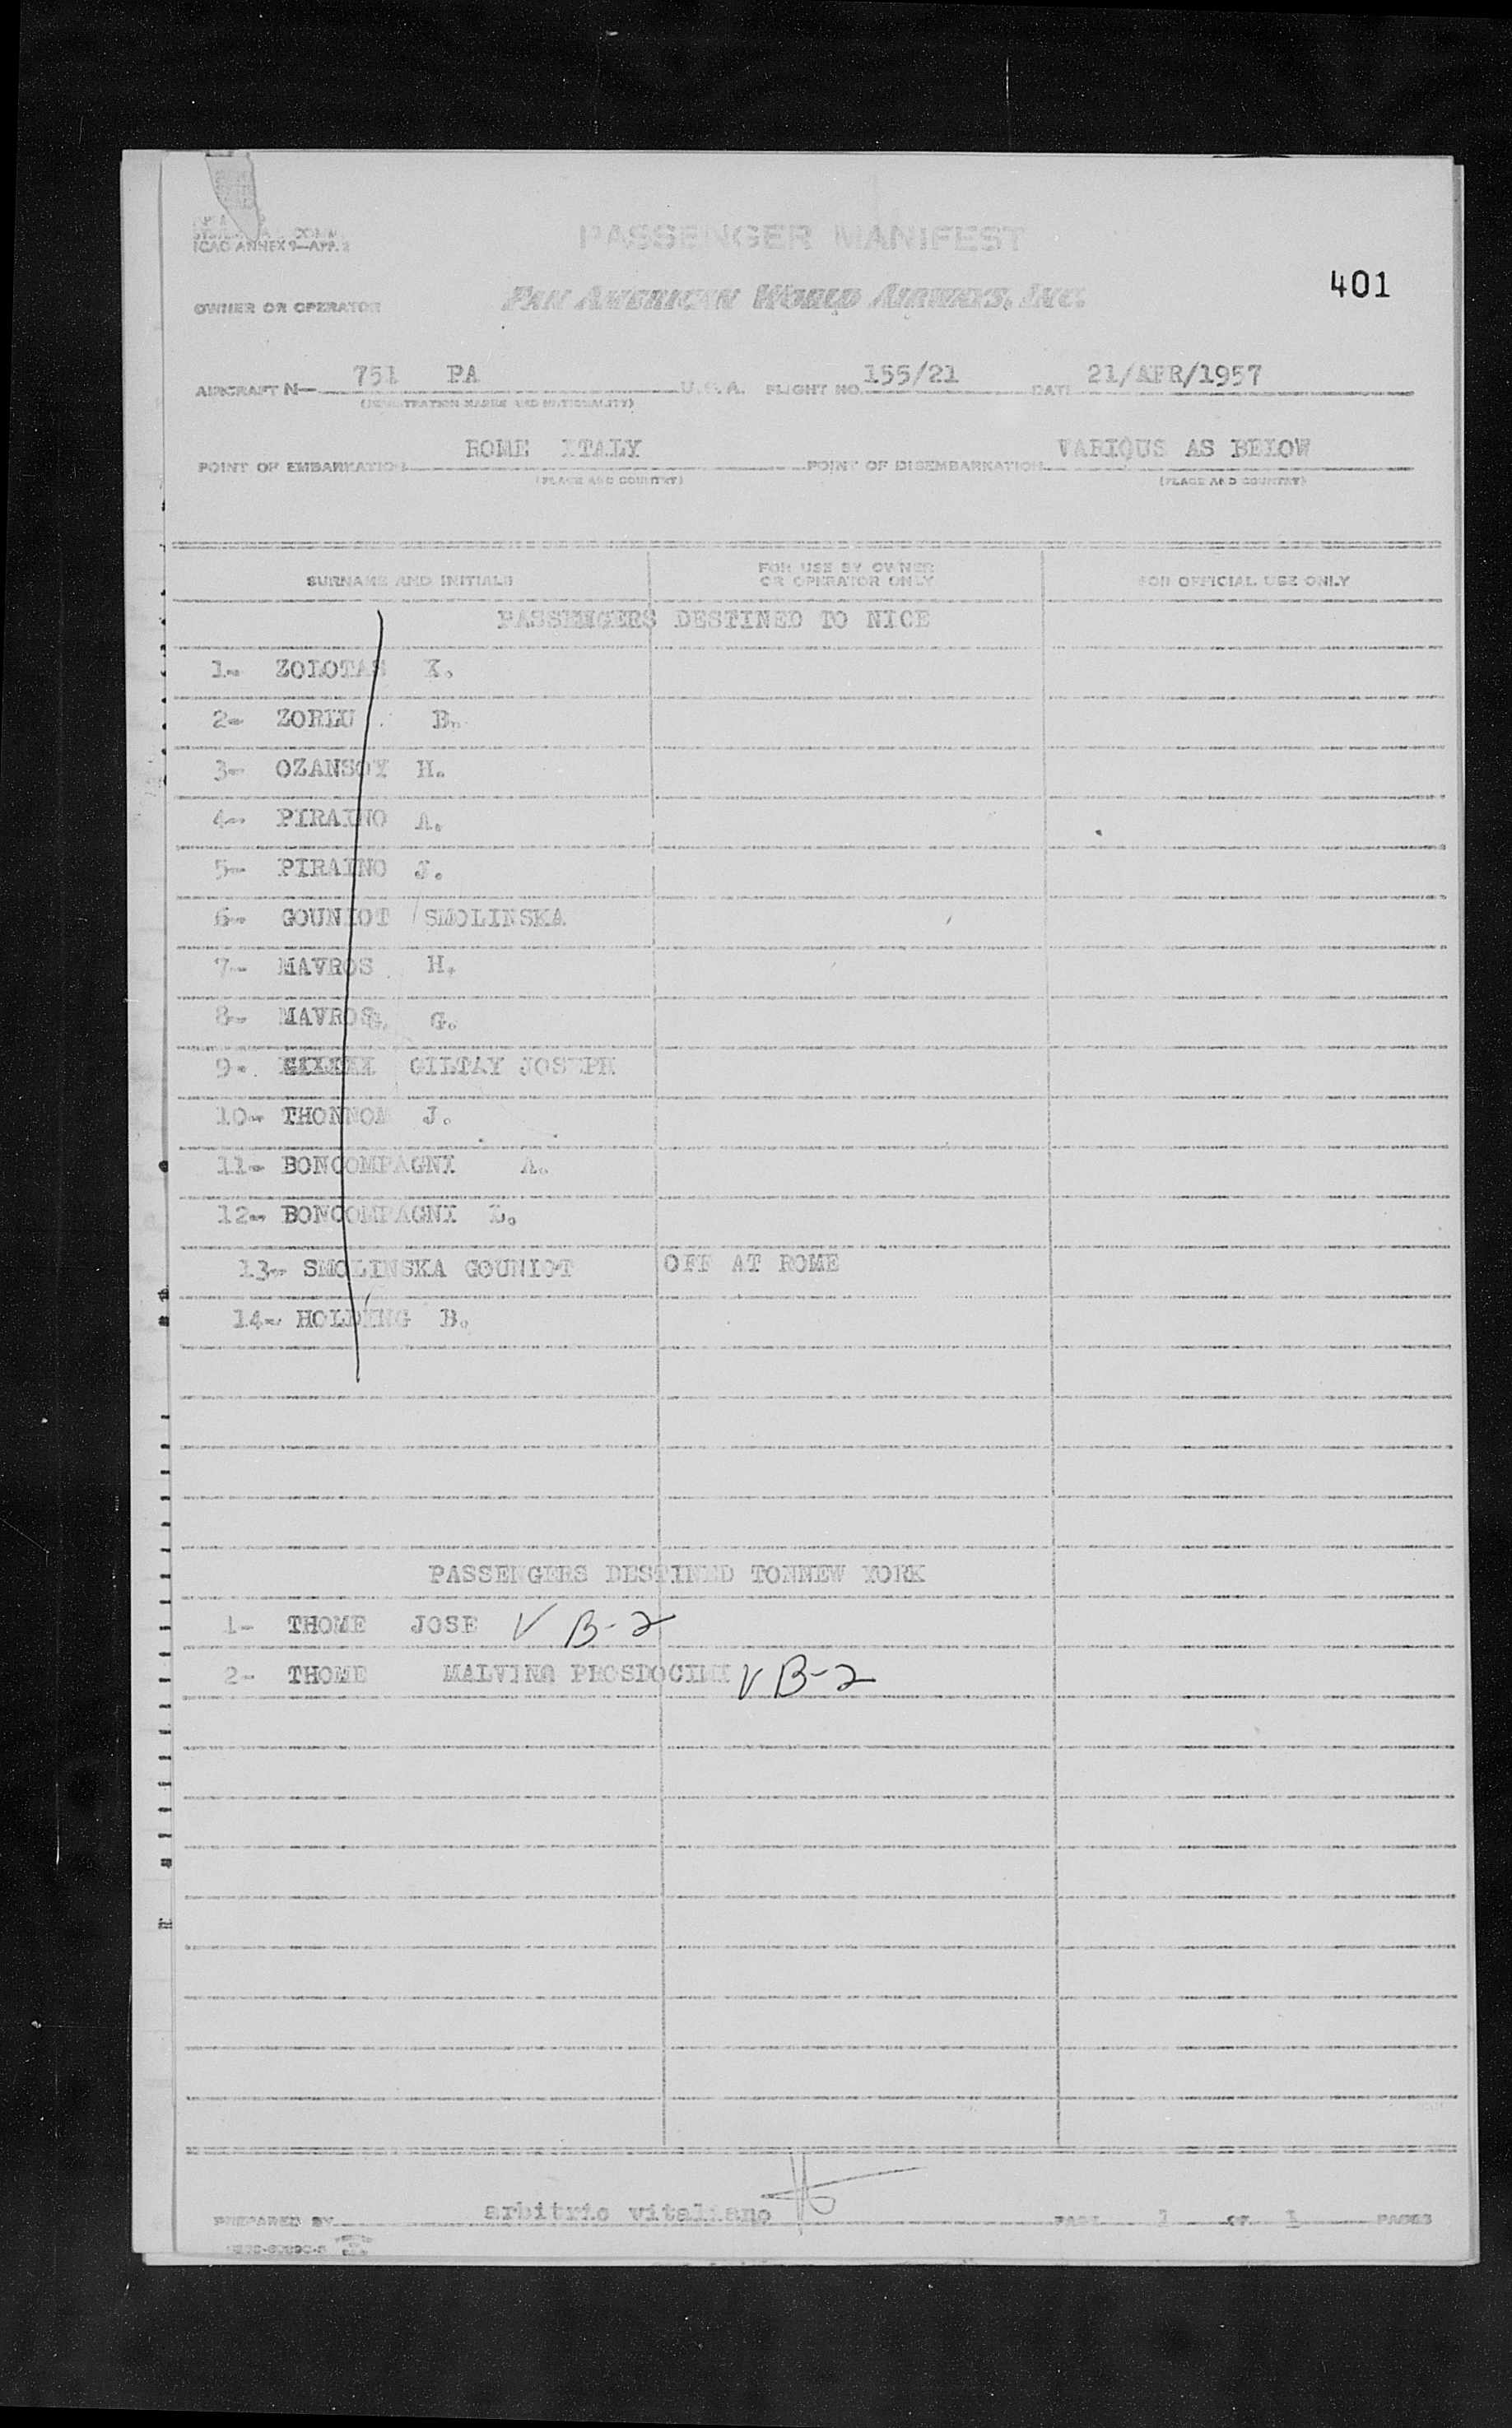 ICAO ANNEX 9—APP. 2
PASSENGER MANIFEST
401
OWNER OR OPERATOR PAN AMERICAN WORLD AIRWAYS, INC.
AIRCRAFT N— 751 PA U.S.A. FLIGHT NO. 155/21 DATE 21/APR/1957
(REGISTRATION MARKS AND NATIONALITY)
POINT OF EMBARKATION ROME ITALY POINT OF DISEMBARKATION VARIOUS AS BELOW
(PLACE AND COUNTRY) (PLACE AND COUNTRY)
SURNAME AND INITIALS FOR USE BY OWNER OR OPERATOR ONLY FOR OFFICIAL USE ONLY
PASSENGERS DESTINED TO NICE
1- ZOLOTAS X.
2- ZORLU B.
3- OZANSOY H.
4- PIRAINO A.
5- PIRAINO J.
6- GOUNIOT SMOLINSKA
7- MAVROS H.
8- MAVROS G.
9- GILTAY JOSEPH
10- THONNOM J.
11- BONCOMPAGNI A.
12- BONCOMPAGNI L.
13- SMOLINSKA GOUNIOT OFF AT ROME
14- HOLDING B.
PASSENGERS DESTINED TONNEW YORK
1- THOME JOSE V B-2
2- THOME MALVINA PROSDOCIMI V B-2
PREPARED BY arbitrio vitaliano PAGE 1 OF 1 PAGES